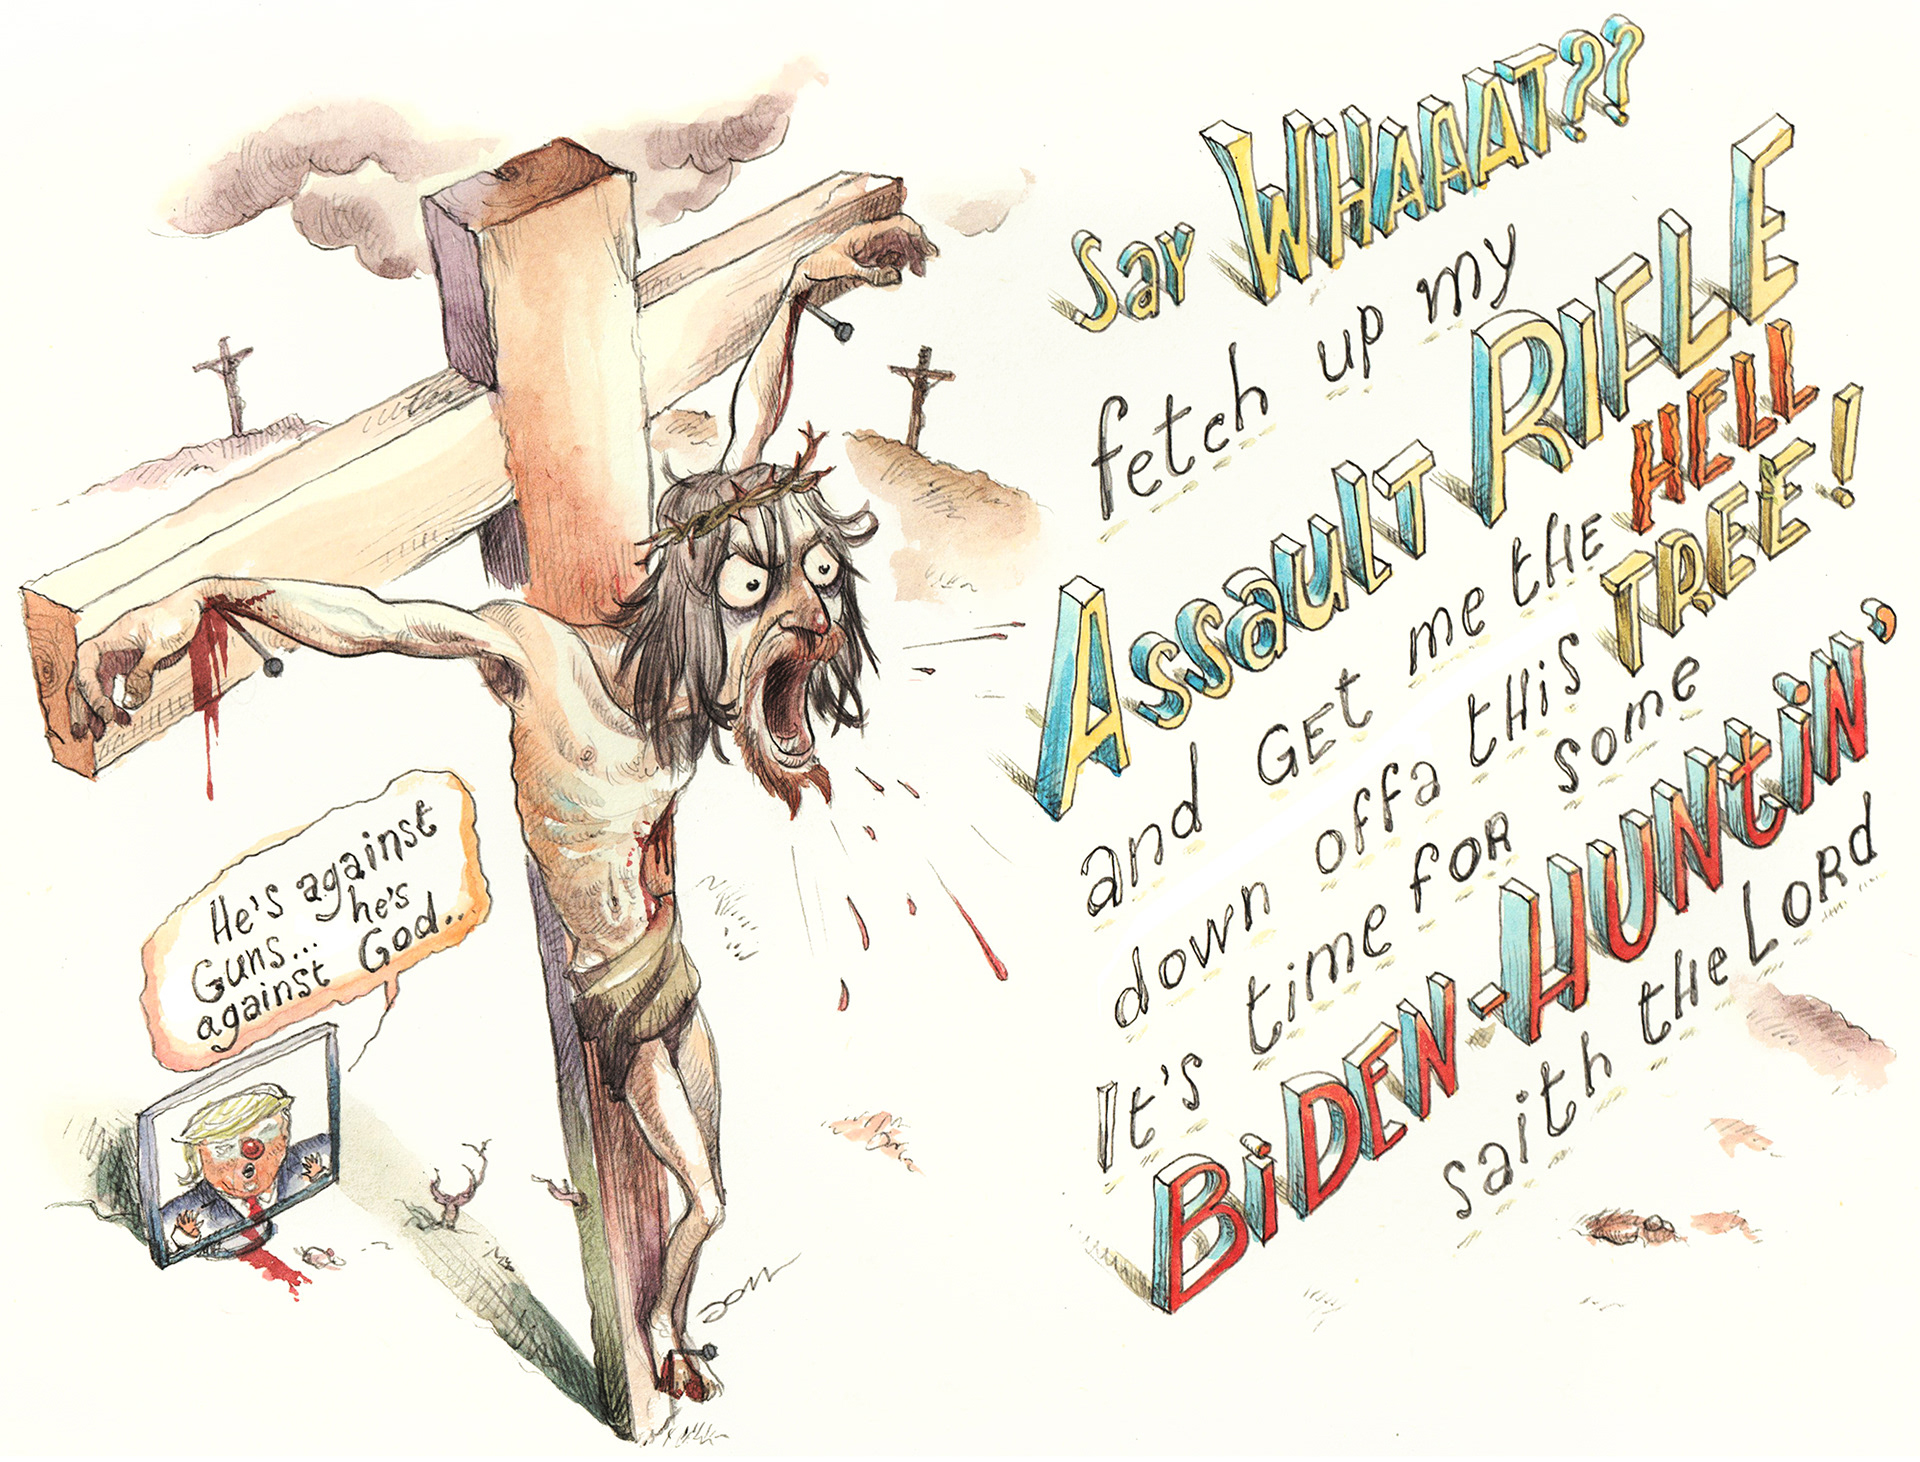 Say WHAAAT??
fetch up my
Assault RIFLE
and GEt me tHE HELL
down offa tHis TREE!
It's time FOR some
BiDEN-HUNtiN'
saith tHe LoRd
He's against
Guns... he's
against God..